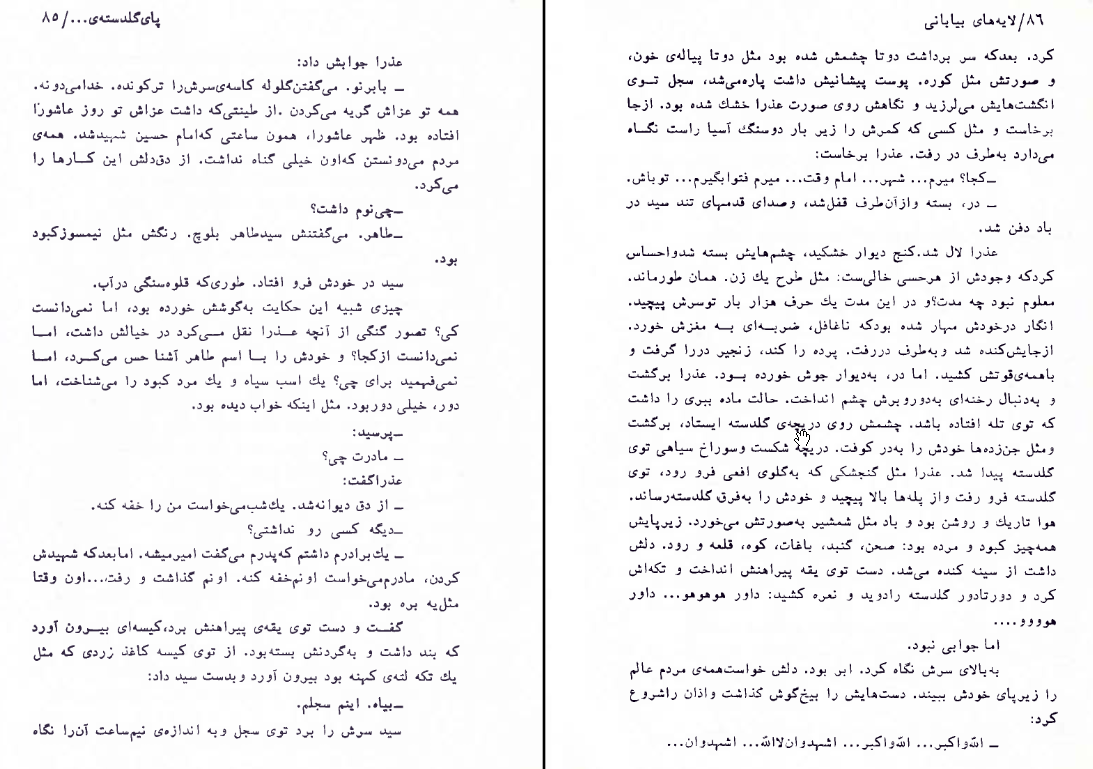 پای‌گلدسته‌ی.../۸۵
عذرا جوابش داد:
ــ بابرنو. می‌گفتن‌گلوله کاسه‌ی‌سرش‌را ترکونده. خدامی‌دونه.
همه تو عزاش گریه می‌کردن .از طینتی‌که داشت عزاش تو روز عاشورا
افتاده بود. ظهر عاشورا، همون ساعتی که‌امام حسین شهیدشد. همه‌ی
مردم می‌دونستن که‌اون خیلی گناه نداشت. از دق‌دلش این کــارها را
می‌کرد.
ــچی‌نوم داشت؟
ــطاهر. می‌گفتنش سیدطاهر بلوچ. رنگش مثل نیمسوزکبود
بود.
سید در خودش فرو افتاد. طوری‌که قلوه‌سنگی درآب.
چیزی شبیه این حکایت به‌گوشش خورده بود، اما نمی‌دانست
کی؟ تصور گنگی از آنچه عــذرا نقل مــی‌کرد در خیالش داشت، امــا
نمی‌دانست ازکجا؟ و خودش را بــا اسم طاهر آشنا حس می‌کــرد، امــا
نمی‌فهمید برای چی؟ یك اسب سیاه و یك مرد کبود را می‌شناخت، اما
دور، خیلی دوربود. مثل اینکه خواب دیده بود.
ــپرسید:
ــ مادرت چی؟
عذراگفت:
ــ از دق دیوانه‌شد. یك‌شب‌می‌خواست من را خفه کنه.
ــدیگه کسی رو نداشتی؟
ــ یك‌برادرم داشتم که‌پدرم می‌گفت امیرمیشه. امابعدکه شهیدش
کردن، مادرم‌می‌خواست اونم‌خفه کنه. اونم گذاشت و رفت...اون وقتا
مثل‌یه بره بود.
گفــت و دست توی یقه‌ی پیراهنش برد،کیسه‌ای بیــرون آورد
که بند داشت و به‌گردنش بسته‌بود. از توی کیسه کاغذ زردی که مثل
یك تکه لته‌ی کهنه بود بیرون آورد وبدست سید داد:
ــبیاه. اینم سجلم.
سید سرش را برد توی سجل وبه اندازه‌ی نیم‌ساعت آن‌را نگاه
۸۶/لایه‌های بیابانی
کرد. بعدکه سر برداشت دوتا چشمش شده بود مثل دوتا پیاله‌ی خون،
و صورتش مثل کوره. پوست پیشانیش داشت پاره‌می‌شد، سجل تــوی
انگشت‌هایش می‌لرزید و نگاهش روی صورت عذرا خشك شده بود. ازجا
برخاست و مثل کسی که کمرش را زیر بار دوسنگ آسیا راست نگــاه
می‌دارد به‌طرف در رفت. عذرا برخاست:
ــکجا؟ میرم... شهر... امام وقت... میرم فتوابگیرم... توباش.
ــ در، بسته وازآن‌طرف قفل‌شد، وصدای قدمهای تند سید در
باد دفن شد.
عذرا لال شد.کنج دیوار خشکید، چشم‌هایش بسته شدواحساس
کردکه وجودش از هرحسی خالی‌ست: مثل طرح یك زن. همان طورماند.
معلوم نبود چه مدت؟و در این مدت یك حرف هزار بار توسرش پیچید.
انگار درخودش مهار شده بودکه ناغافل، ضربــه‌ای بــه مغزش خورد.
ازجایش‌کنده شد وبه‌طرف دررفت. پرده را کند، زنجیر دررا گرفت و
باهمه‌ی‌قوتش کشید. اما در، به‌دیوار جوش خورده بــود. عذرا برگشت
و به‌دنبال رخنه‌ای به‌دوروبرش چشم انداخت. حالت ماده ببری را داشت
که توی تله افتاده باشد. چشمش روی دریچه‌ی گلدسته ایستاد، برگشت
ومثل جن‌زده‌ها خودش را به‌در کوفت. دریچه شکست وسوراخ سیاهی توی
گلدسته پیدا شد. عذرا مثل گنجشکی که به‌گلوی افعی فرو رود، توی
گلدسته فرو رفت واز پله‌ها بالا پیچید و خودش را به‌فرق گلدسته‌رساند.
هوا تاریك و روشن بود و باد مثل شمشیر به‌صورتش می‌خورد. زیرپایش
همه‌چیز کبود و مرده بود: صحن، گنبد، باغات، کوه، قلعه و رود. دلش
داشت از سینه کنده می‌شد. دست توی یقه پیراهنش انداخت و تکه‌اش
کرد و دورتادور گلدسته رادوید و نعره کشید: داور هوهوهو... داور
هوووو....
اما جوابی نبود.
به‌بالای سرش نگاه کرد. ابر بود. دلش خواست‌همه‌ی مردم عالم
را زیرپای خودش ببیند. دست‌هایش را بیخ‌گوش گذاشت واذان راشروع
کرد:
ــ الله‌واکبر... الله‌واکبر... اشهدوان‌لاالله... اشهدوان...